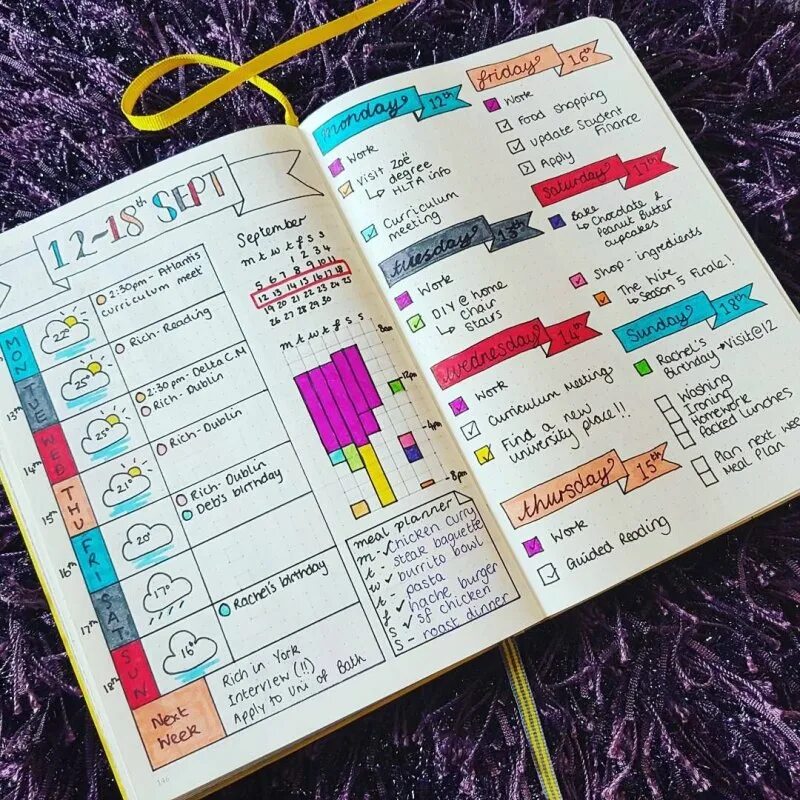 12-18th SEPT
MON
22°
2:30pm - Atlantis
curriculum meet'
13th
TUE
25°
Rich - Reading
14th
WED
25°
2:30 pm - Delta C.M
Rich - Dublin
15th
THU
21°
Rich - Dublin
16th
FRI
20°
Rich - Dublin
Deb's birthday
17th
SAT
17°
18th
SUN
16°
Rachel's birthday
Next
Week
Rich in York
Interview (!!)
Apply to Uni of Bath
146
September
m t w t f s s
1 2 3 4
5 6 7 8 9 10 11
12 13 14 15 16 17 18
19 20 21 22 23 24 25
26 27 28 29 30
m t w t f s s
8am
12pm
4pm
8pm
meal planner
m - chicken curry
t - steak baguette
w burrito bowl
t pasta
f hache burger
s sf chicken
s - roast dinner
monday 12th
Work
Visit Zoë
↳ degree
↳ HLTA info
Curriculum
meeting
tuesday 13th
Work
DIY @ home
↳ Chair
↳ Stairs
wednesday 14th
Work
Curriculum Meeting
Find a new
university place!!
thursday 15th
Work
Guided Reading
friday 16th
Work
Food shopping
Update Student
Finance
Apply
Saturday 17th
Bake
↳ Chocolate &
Peanut Butter
cupcakes
Shop - ingredients
The Wire
↳ Season 5 Finale!
Sunday 18th
Rachel's
Birthday → Visit@12
Washing
Ironing
Homework
Packed lunches
Plan next week
Meal Plan